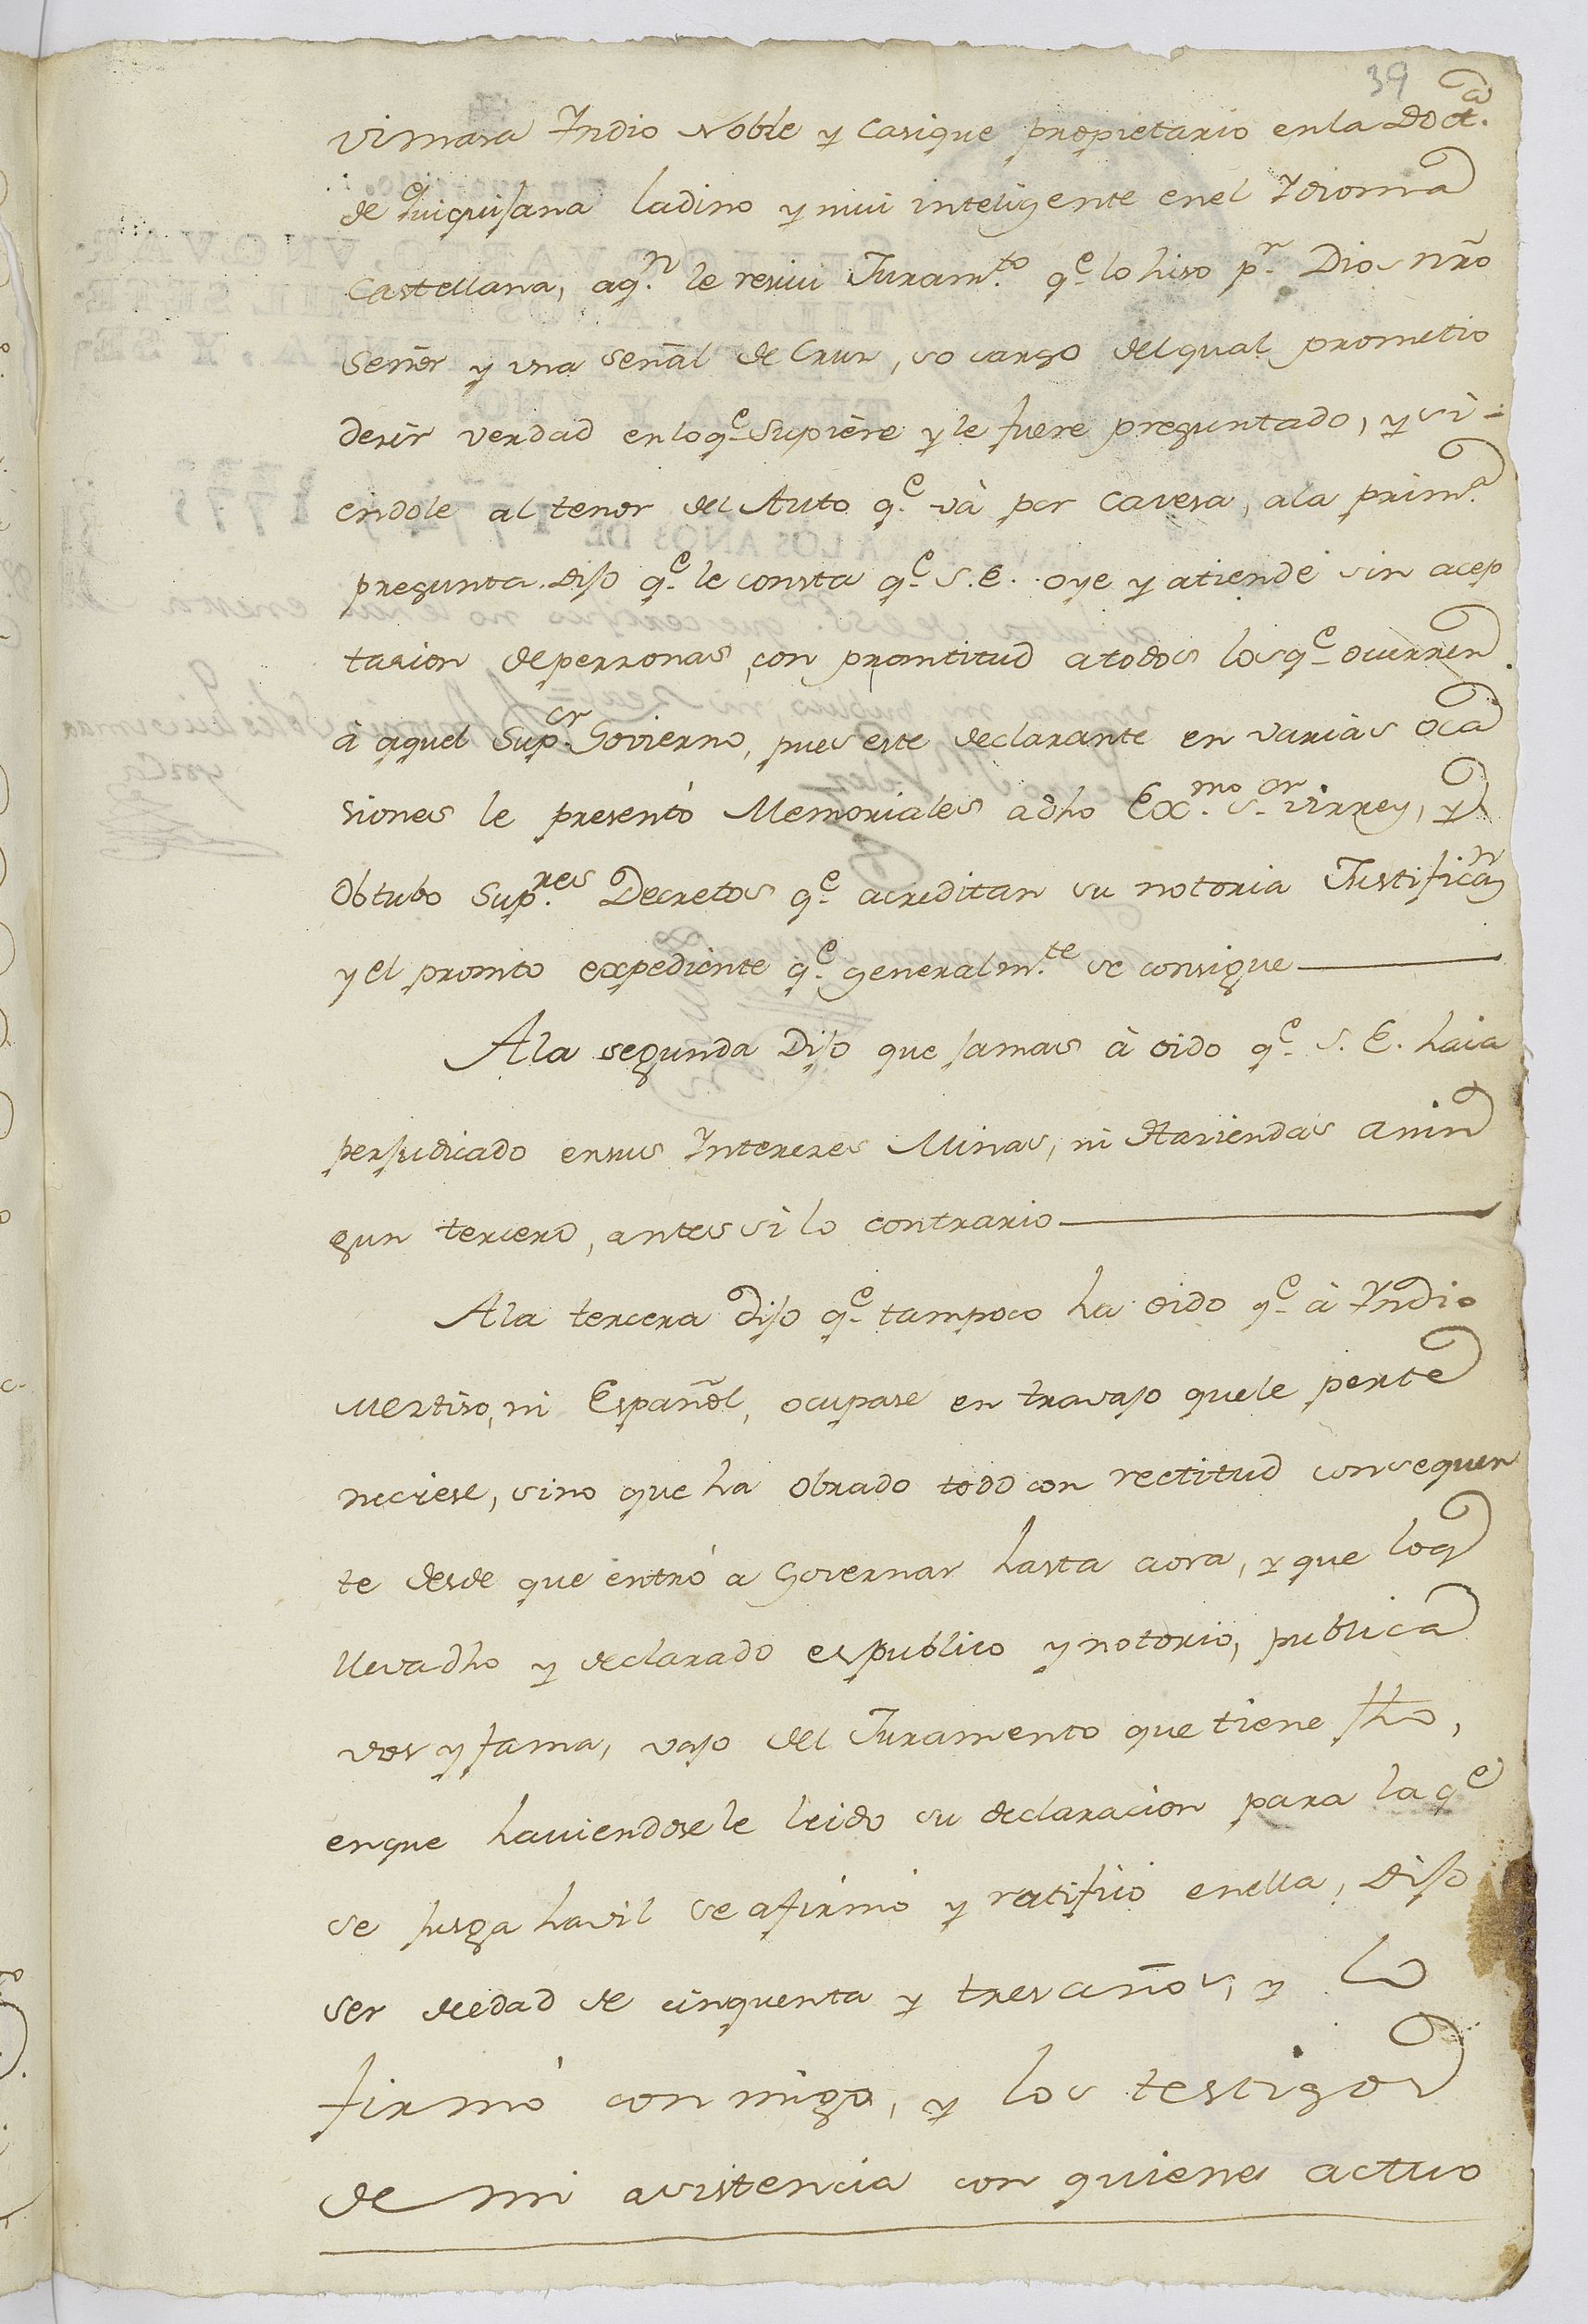 39
vimasa Yndio Noble y Casique propietario enla Doct.ª
de Quiquisana ladino y mui inteligente enel Ydioma
Castellana, aq.n le resivi Juram.to q.e lo hiso p.r Dios nrõ
Señor y vna señal de Crus, so cargo delqual prometio
desir verdad enloq.e Supiere y le fuere preguntado, y si-
endole al tenor del Auto q.e và por Cavesa, ala prim.ª
pregunta Dijo q.e le consta q.e S.E. oye y atiende sin acep
tasion depersonas, con promtitud atodos losq.e ocurren
à aquel Sup.or Govierno, pues este declarante en varias oca
siones le presentò Memoriales adho Ex.mo S.or Virrey, y
Obtubo Sup.res Decretos q.e acreditan su notoria Justific.n
y el promto expediente q.e generalm.te se consigue
Ala segunda Dijo que jamas à oido q.e S.E. haia
perjudicado ensus Intereses Minas, ni Hasiendas anin
gun tercero, antes si lo contrario
Ala tercera dijo q.e tampoco ha oido q.e à Yndio
Mestiso, ni Español, ocupase en travajo quele perte
neciese, sino que ha obrado todo con rectitud consequen
te desde que entrò a Governar hasta aora, y que loq
lleva dho y declarado espublico y notorio, publica
vos y fama, vajo del Juramento que tiene fho,
enque haviendosele leido su declaracion para la q.e
se jusga havil se afirmò y ratificò enella, Dijo
ser deedad de cinquenta y tres años, y lo
firmò conmigo, y los testigos
de mi asistencia con quienes actuo